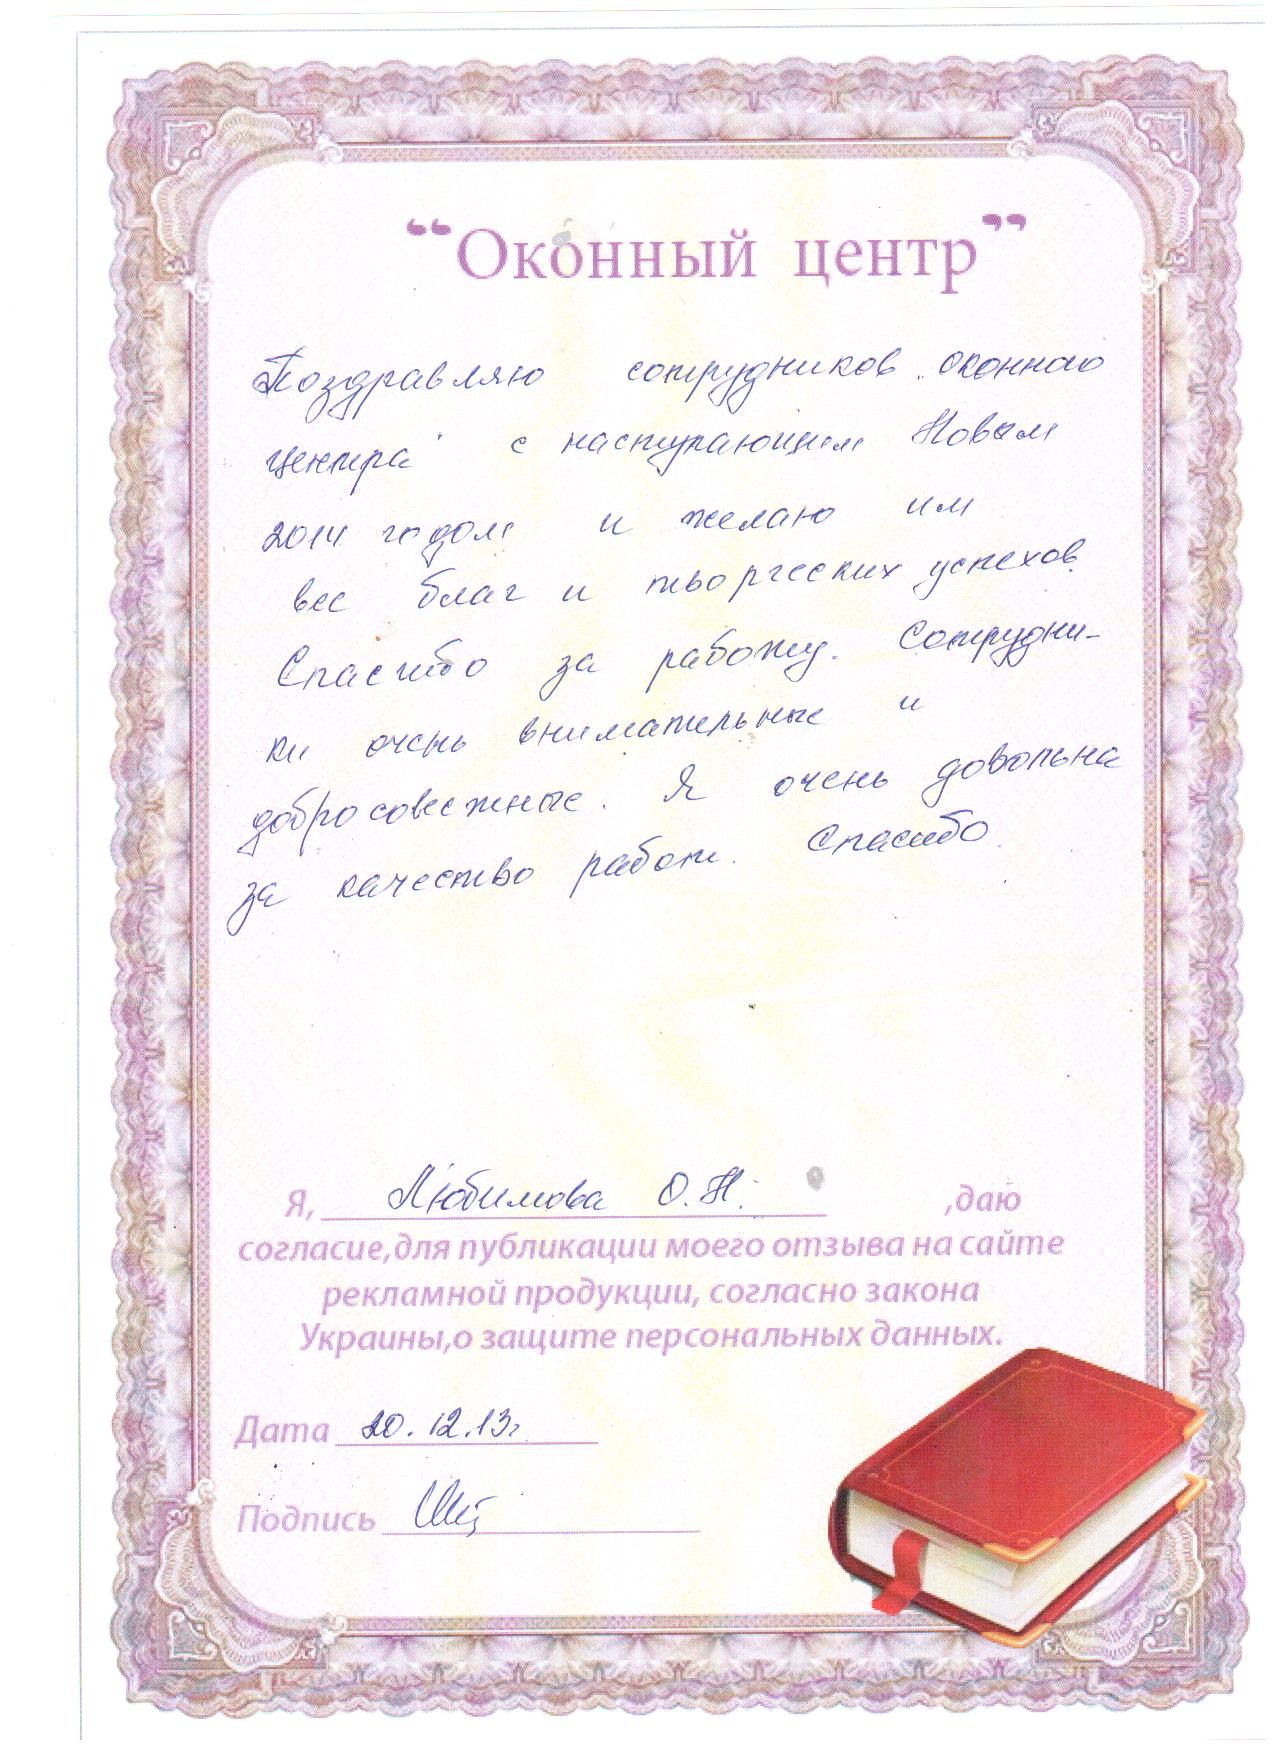 “Оконный центр”
Поздравляю сотрудников „оконного
центра" с наступающим Новым
2014 годом и желаю им
всех благ и творческих успехов.
Спасибо за работу. Сотрудни-
ки очень внимательные и
добросовестные. Я очень довольна
за качество работ. Спасибо.
Я, Любимова О. Н. ,даю
согласие,для публикации моего отзыва на сайте
рекламной продукции, согласно закона
Украины,о защите персональных данных.
Дата 20.12.13г
Подпись